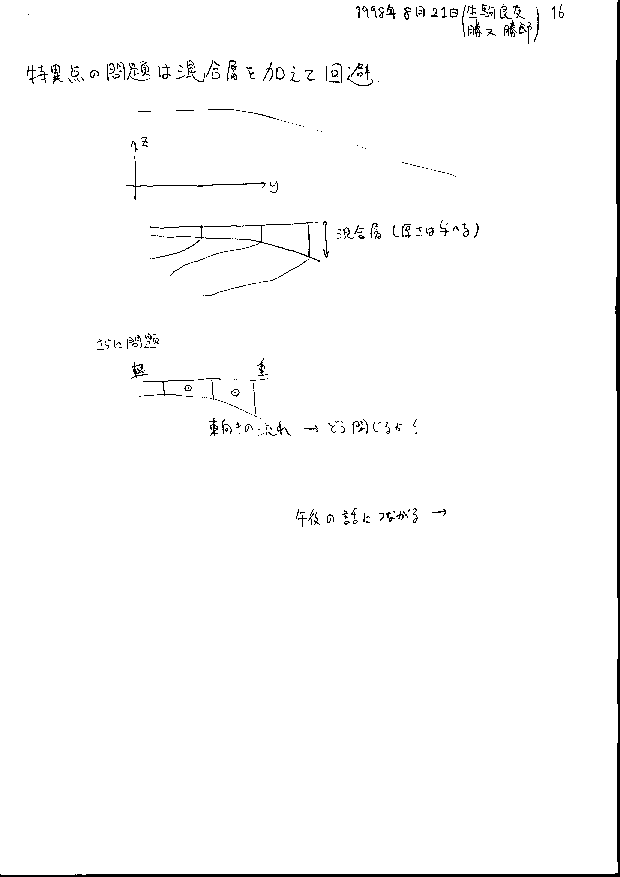 1998年8月21日 (生駒良友 16
勝又 勝郎)
特異点の問題は混合層を加えて回避.
z
y
混合層 (厚さは与へる)
さらに問題
軽 重
東向きの流れ → どう閉じるか?
午後の話につながる →